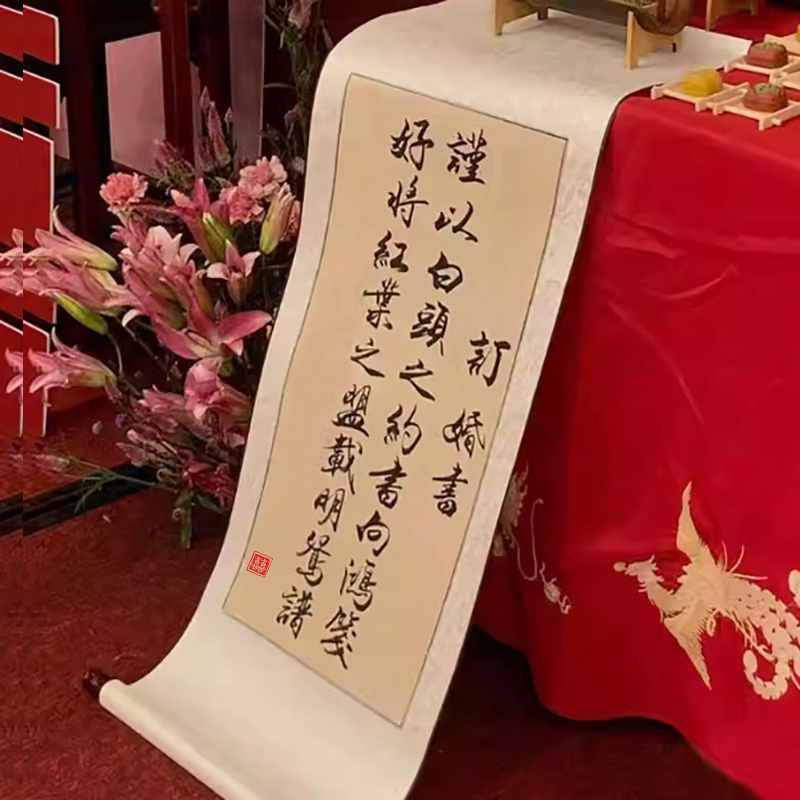 訂婚書
謹以白頭之約書向鴻箋
好将紅葉之盟載明鴛譜
囍